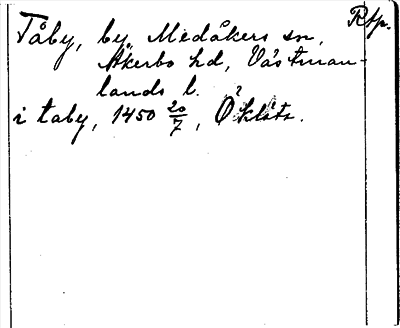 Tåby, by Medåkers sn, Rtp.
Åkerbo hd, Västman-
lands l.
i taby, 1450 20/7, Ö klöts.